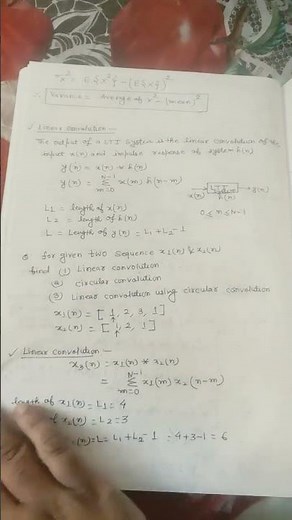 σx² = E{x²} - (E{x})²
∴ Variance = Average of x² - (mean)²
✓ Linear convolution -
The output of a LTI system is the linear convolution of the
input x(n) and impulse response of system h(n)
y(n) = x(n) * h(n)
y(n) = Σ x(m) h(n-m)
N-1
m=0
x(n) → LTI h(n) → y(n)
L1 = length of x(n)
L2 = length of h(n)
0 ≤ n ≤ N-1
L = Length of y(n) = L1 + L2 - 1
Q For given two sequence x1(n) & x2(n)
find (1) Linear convolution
(2) circular convolution
(3) Linear convolution using circular convolution
x1(n) = [1, 2, 3, 1]
↑
x2(n) = [1, 2, 1]
↑
✓ Linear convolution -
x3(n) = x1(n) * x2(n)
= Σ x1(m) x2(n-m)
N-1
m=0
length of x1(n) = L1 = 4
of x2(n) = L2 = 3
(n) = L = L1 + L2 - 1 = 4+3-1 = 6